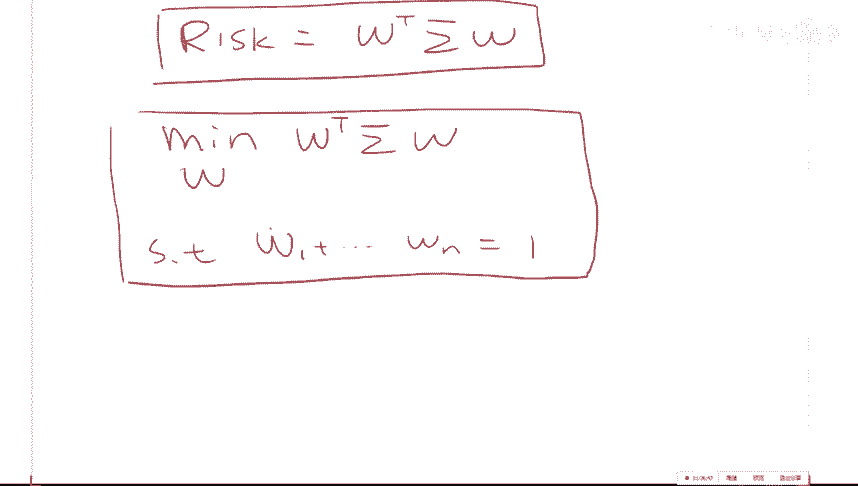 Risk = W^T Σ W
min W^T Σ W
W
s.t W₁ + ... Wₙ = 1